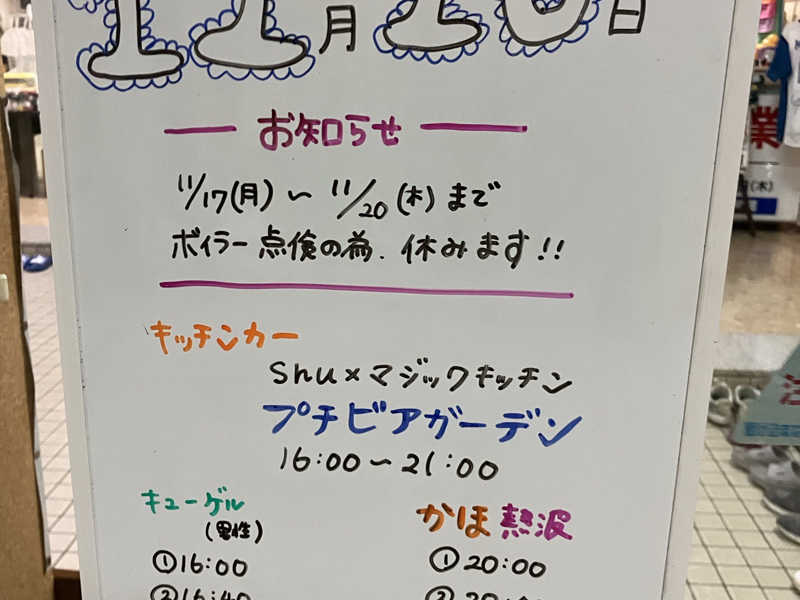 11月16日
お知らせ
11/17(月)～11/20(木)まで
ボイラー点検の為、休みます!!
キッチンカー
Shu×マジックキッチン
プチビアガーデン
16:00～21:00
キューゲル
(男性)
かほ熱波
①16:00
①20:00
②16:40
業
(木)